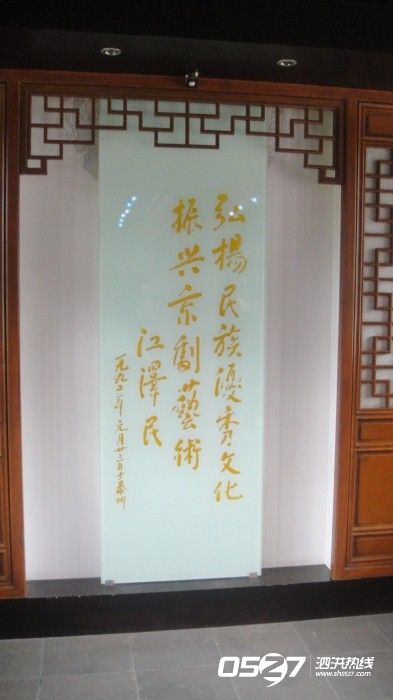 弘揚民族優秀文化
振兴京劇藝術
江澤民
一九九二年元月廿三日于泰州
0527 泗洪热线
www.sh0527.com